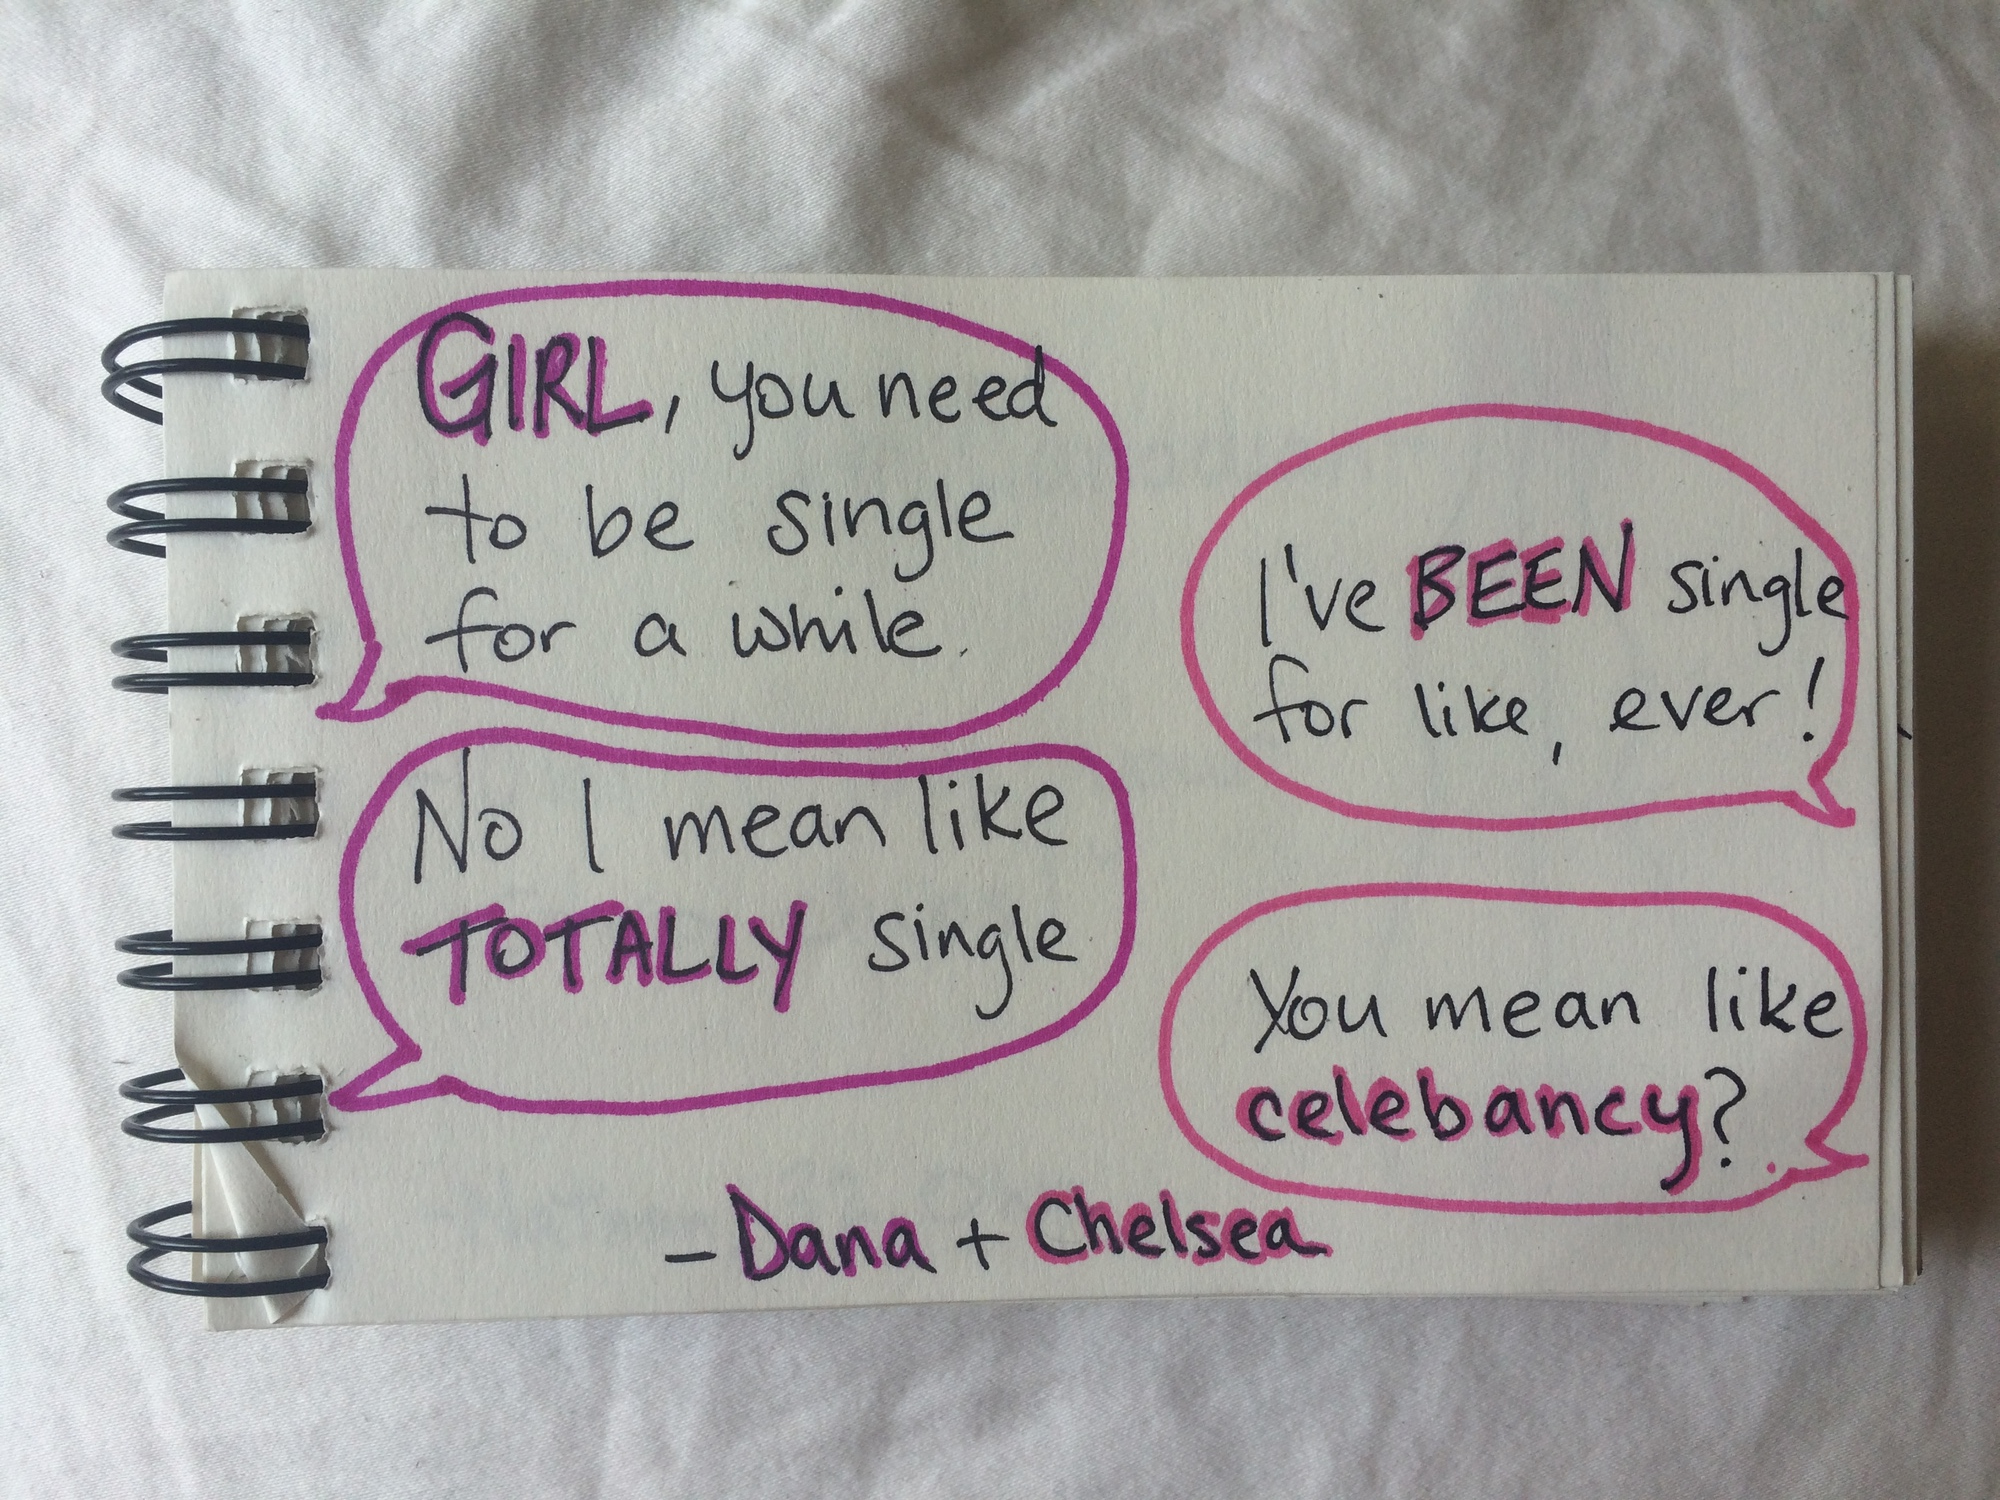 GIRL, you need
to be single
for a while.
I've BEEN single
for like, ever!
No I mean like
TOTALLY single
You mean like
celebancy?
- Dana + Chelsea